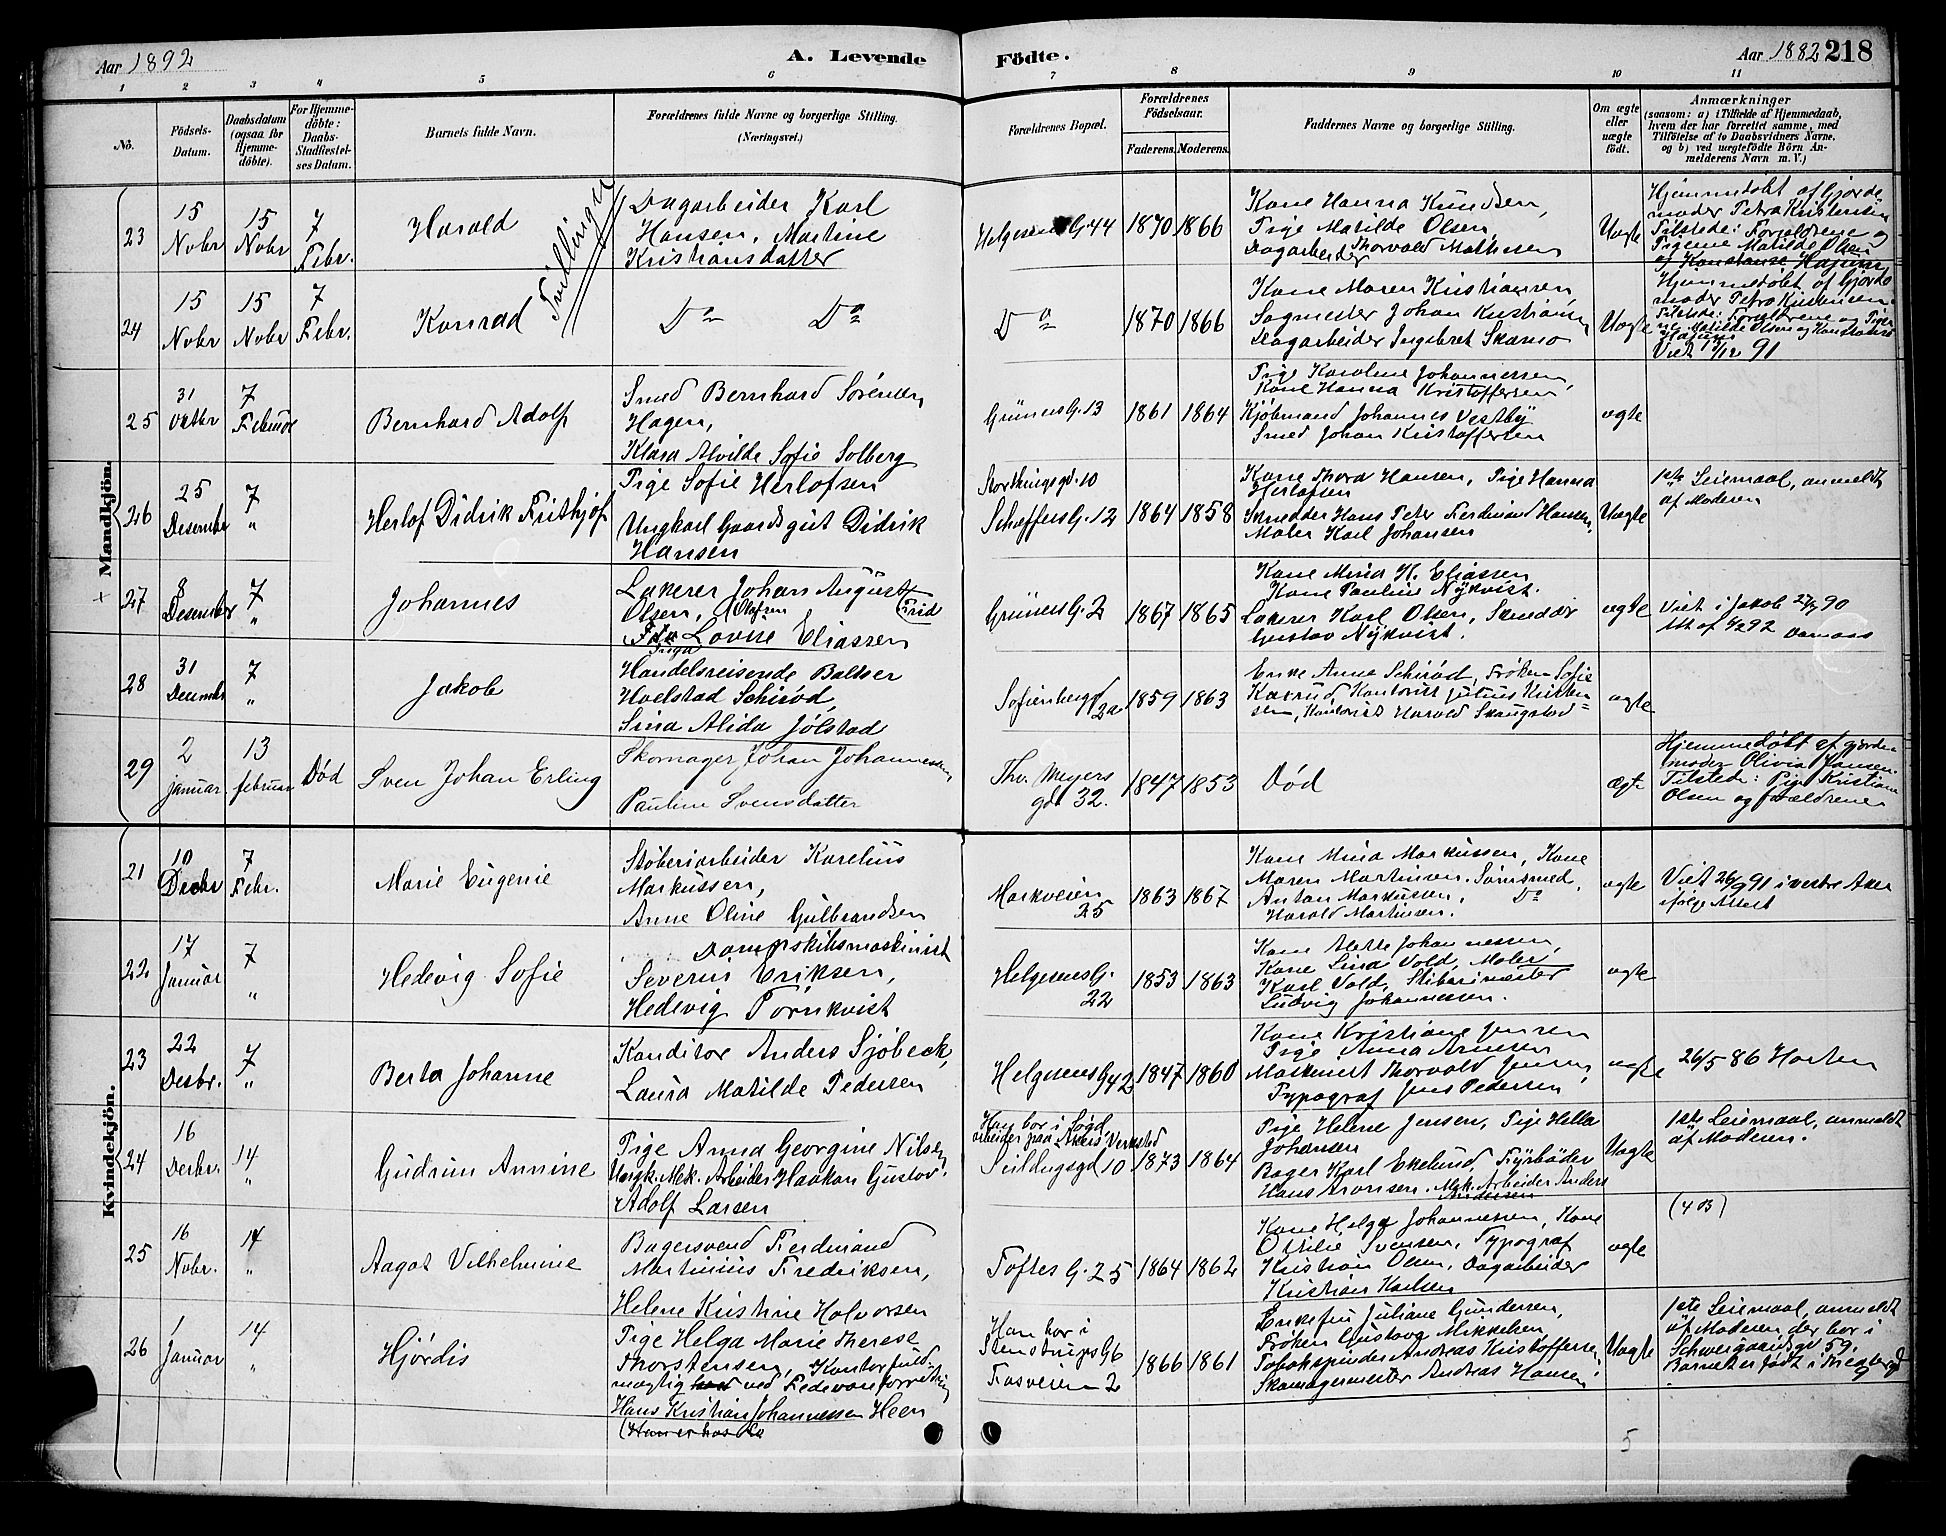 Aar 1892
A. Levende
Födte.
Aar 1882
218
1 2 3 4 5 6 7 8 9 10 11
No.
Födsels-Datum.
Daabsdatum (ogsaa for Hjemme-döbte).
For Hjemme-döbte: Daabs-Stadfæstel-ses Datum.
Barnets fulde Navn.
Forældrenes fulde Navne og borgerlige Stilling.
(Næringsvei.)
Forældrenes Bopæl.
Forældrenes Födselsaar.
Faderens. Moderens.
Faddernes Navne og borgerlige Stilling.
Om ægte eller uægte födt.
Anmærkninger
(saasom: a) i Tilfælde af Hjemmedaab,
hvem der har forrettet samme, med
Tilföielse af to Daabsvidners Navne.
og b) ved uægtefödte Börn An-
melderens Navn m. V.)
Mandkjön.
23
15 Nobr
15 Nobr
7 Febr.
Harald
Tvillinger
Dagarbeider Karl
Hansen, Martine
Kristiansdatter
Helgesens G. 44
1870 1866
Kone Hanna Knudsen,
Pige Matilde Olsen,
Dagarbeider Thorvald Mathisen
Uægte
Hjemmedøbt af Gjorde
moder Petra Kristensen
Tilstede: Forældrene og
Pigerne Matilde Olsen
og Konstanse
24
15 Nobr
15 Nobr
7 Febr.
Konrad
Do Do
Do
1870 1866
Kone Maren Kristiansen
Sagmester Johan Kristiansen
Dagarbeider Ingebret Skamo
Uægte
Hjemmedøbt af Gjorde
moder Petra Kristensen.
Tilstede: Forældrene og Piger
ne Matilde Olsen og Konstanse
Viet 12 91
25
31 Oktbr
7 Februar
Bernhard Adolf
Smed Bernhard Sörensen
Hagen,
Klara Alvilde Sofie Solberg
Grüners G. 13
1861 1864
Pige Karoline Johannessen,
Kone Hanna Kristoffersen
Kjöbmand Johannes Vestby
Smed Johan Kristoffersen
ægte
26
25 Desember
7 "
Herlof Didrik Frithjof
Pige Sofie Herlofsen
Ungkarl Gaardsgut Didrik
Hansen
Storthingsgd. 10
Schæffers G. 12
1864 1858
Kone Thora Hansen, Pige Hanna
Herlofsen
Skredder Hans Peter Ferdinand Hansen,
Maler Karl Johansen
Uægte
1ste Leiemaal, anmeldt
af Moderen
27
8 Desember
7 "
Johannes
Lakerer Johan August
Olsen,
Lovise Eliassen
Grüners G. 2
1867 1865
Kone Mina H. Eliassen
Kone Pauline Nykvist.
Lakerer Karl Olsen, Skredder
Gustav Nykvist.
ægte
Viet i Jakob 90
28
31 Decmbr
7 "
Jakob
Handelsreisende Baltser
Hoelstad Schiród,
Sina Alida Jølstad
Sofienberggd 2a
1859 1863
Enke Anne Schiröd, Frøken Sofie
Kaxrud, Kontorist Julius Kristen
sen, Kontorist Harald Skaugstad
ægte
29
2 januar
13 februar
Död
Sven Johan Erling
Skomager Johan Johannessen,
Pauline Svensdatter
Thv. Meyers
gd. 32.
1847 1853
Död
ægte
Hjemmedöbt af gjorde
moder Olivia Jansen
Tilstede: Pige Kristiane
Olsen og forældrene
Kvindekjön.
21
10 Decbr
7 Febr.
Marie Eugenie
Støberiarbeider Karelius
Markussen,
Anne Oline Gulbrandsen
Markveien
25
1863 1867
Kone Mina Markussen, Kone
Maren Martinsen. Sömsmed,
Anton Markussen, Do
Harald Martinsen.
ægte
Viet 26/9 91 i vestre Aker
ifølge Attest
22
17 Januar
7 "
Hedevig Sofie
Dampskibsmaskinist
Severin Eriksen,
Hedevig Törnkvist
Helgesens G.
22
1853 1863
Kone Alette Johannessen,
Kone Lina Vold, Maler
Karl Vold, Stiberimester
Ludvig Johannessen.
ægte
23
22 Desbr.
7 "
Berta Johanne
Konditor Anders Sjöbeck,
Laura Matilde Pedersen
Helgesens G 42
1847 1860
Kone Kristiane Jensen
Pige Anna Arnesen
Maskinist Thorvald Jensen,
Typograf Jens Pedersen
ægte
26/5 86 Horten
24
16 Desbr.
14 "
Gudrun Annine
Pige Anna Georgine Nilsen,
Ungk. Mek. Arbeider Haakon Gustav
Adolf Larsen
Han bor i
arbeider paa Akers Verksted
Seildugsgd 10
1873 1864
Pige Helene Jensen, Pige Hella
Johansen
Bager Karl Ekelund, Fyrbøder
Hans Aronsen. Mek. Arbeider Anders
Andersen
Uægte
1ste Leiemaal, anmeldt
af Moderen.
25
16 Nobr.
14 "
Aagot Vilhelmine
Bagersvend Ferdinand
Martinius Fredriksen,
Helene Kristine Halvorsen
Toftes G. 25
1864 1862
Kone Helga Johannessen, Kone
Ottilie Svensen, Typograf
Kristian Olsen, Dagarbeider
Kristian Karlsen
ægte
(4 B)
26
1 Januar
14 "
Hjördis
Pige Helga Marie Therese
Thorstensen, Kontorfuld-
mægtig ved Fedevareforretning
Hans Kristian Johannessen Heen
Han bor i
Stenstrups G 6
Fossveien 2
1866 1861
Enkefru Juliane Gundersen,
Frøken Gustava Mikkelsen,
Tobakspinder Andreas Kristoffersen,
Skomagermester Andreas Hansen
Uægte
1ste Leiemaal, anmeldt
af Moderen, der bor i
Schweigaardsgd 59.
Barnet er født i
5